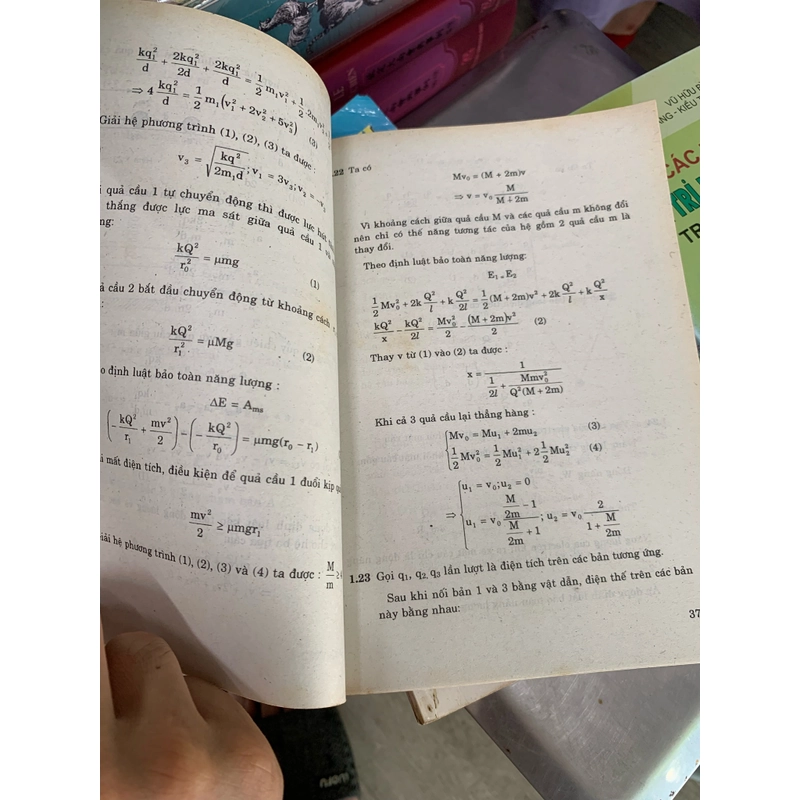 kq₁²/d + 2kq₁²/2d + 2kq₁²/d = 1/2 m₁v₁² + 1/2 · 2m
⇒ 4 kq₁²/d = 1/2 m₁(v₁² + 2v₂² + 5v₃²) (3)
Giải hệ phương trình (1), (2), (3) ta được :
v₃ = √(kq²/2m₁d); v₁ = 3v₃; v₂ = –v₃
quả cầu 1 tự chuyển động thì được lực
thắng được lực ma sát giữa quả cầu 1
kQ²/r₀² = μmg (1)
cầu 2 bắt đầu chuyển động từ khoảng cách
kQ²/r₁² = μMg (2)
định luật bảo toàn năng lượng :
ΔE = Aₘₛ
(–kQ²/r₁ + mv²/2) – (–kQ²/r₀) = μmg(r₀ – r₁)
mất điện tích, điều kiện để quả cầu 1 đuổi kịp
mv²/2 ≥ μmgr₁
hệ phương trình (1), (2), (3) và (4) ta được : M/m ≥
.22 Ta có
Mv₀ = (M + 2m)v
⇒ v = v₀ M/(M + 2m)
Vì khoảng cách giữa quả cầu M và các quả cầu m không đổi
nên chỉ có thế năng tương tác của hệ gồm 2 quả cầu m là
thay đổi.
Theo định luật bảo toàn năng lượng:
E₁ = E₂
1/2 Mv₀² + 2k Q²/l + k Q²/2l = 1/2 (M + 2m)v² + 2k Q²/l + k Q²/x
kQ²/x – kQ²/2l = Mv₀²/2 – (M + 2m)v²/2 (2)
Thay v từ (1) vào (2) ta được :
x = 1/(1/2l + Mmv₀²/Q²(M + 2m))
Khi cả 3 quả cầu lại thẳng hàng :
{Mv₀ = Mu₁ + 2mu₂ (3)
{1/2 Mv₀² = 1/2 Mu₁² + 2 1/2 Mu₂² (4)
⇒ {u₁ = v₀; u₂ = 0
{u₁ = v₀ (M/2m – 1)/(M/2m + 1); u₂ = v₀ 2/(1 + M/2m)
1.23 Gọi q₁, q₂, q₃ lần lượt là điện tích trên các bản tương ứng.
Sau khi nối bản 1 và 3 bằng vật dẫn, điện thế trên các bản
này bằng nhau:
37
VŨ HỮU
KIỀU
CÁC
TR